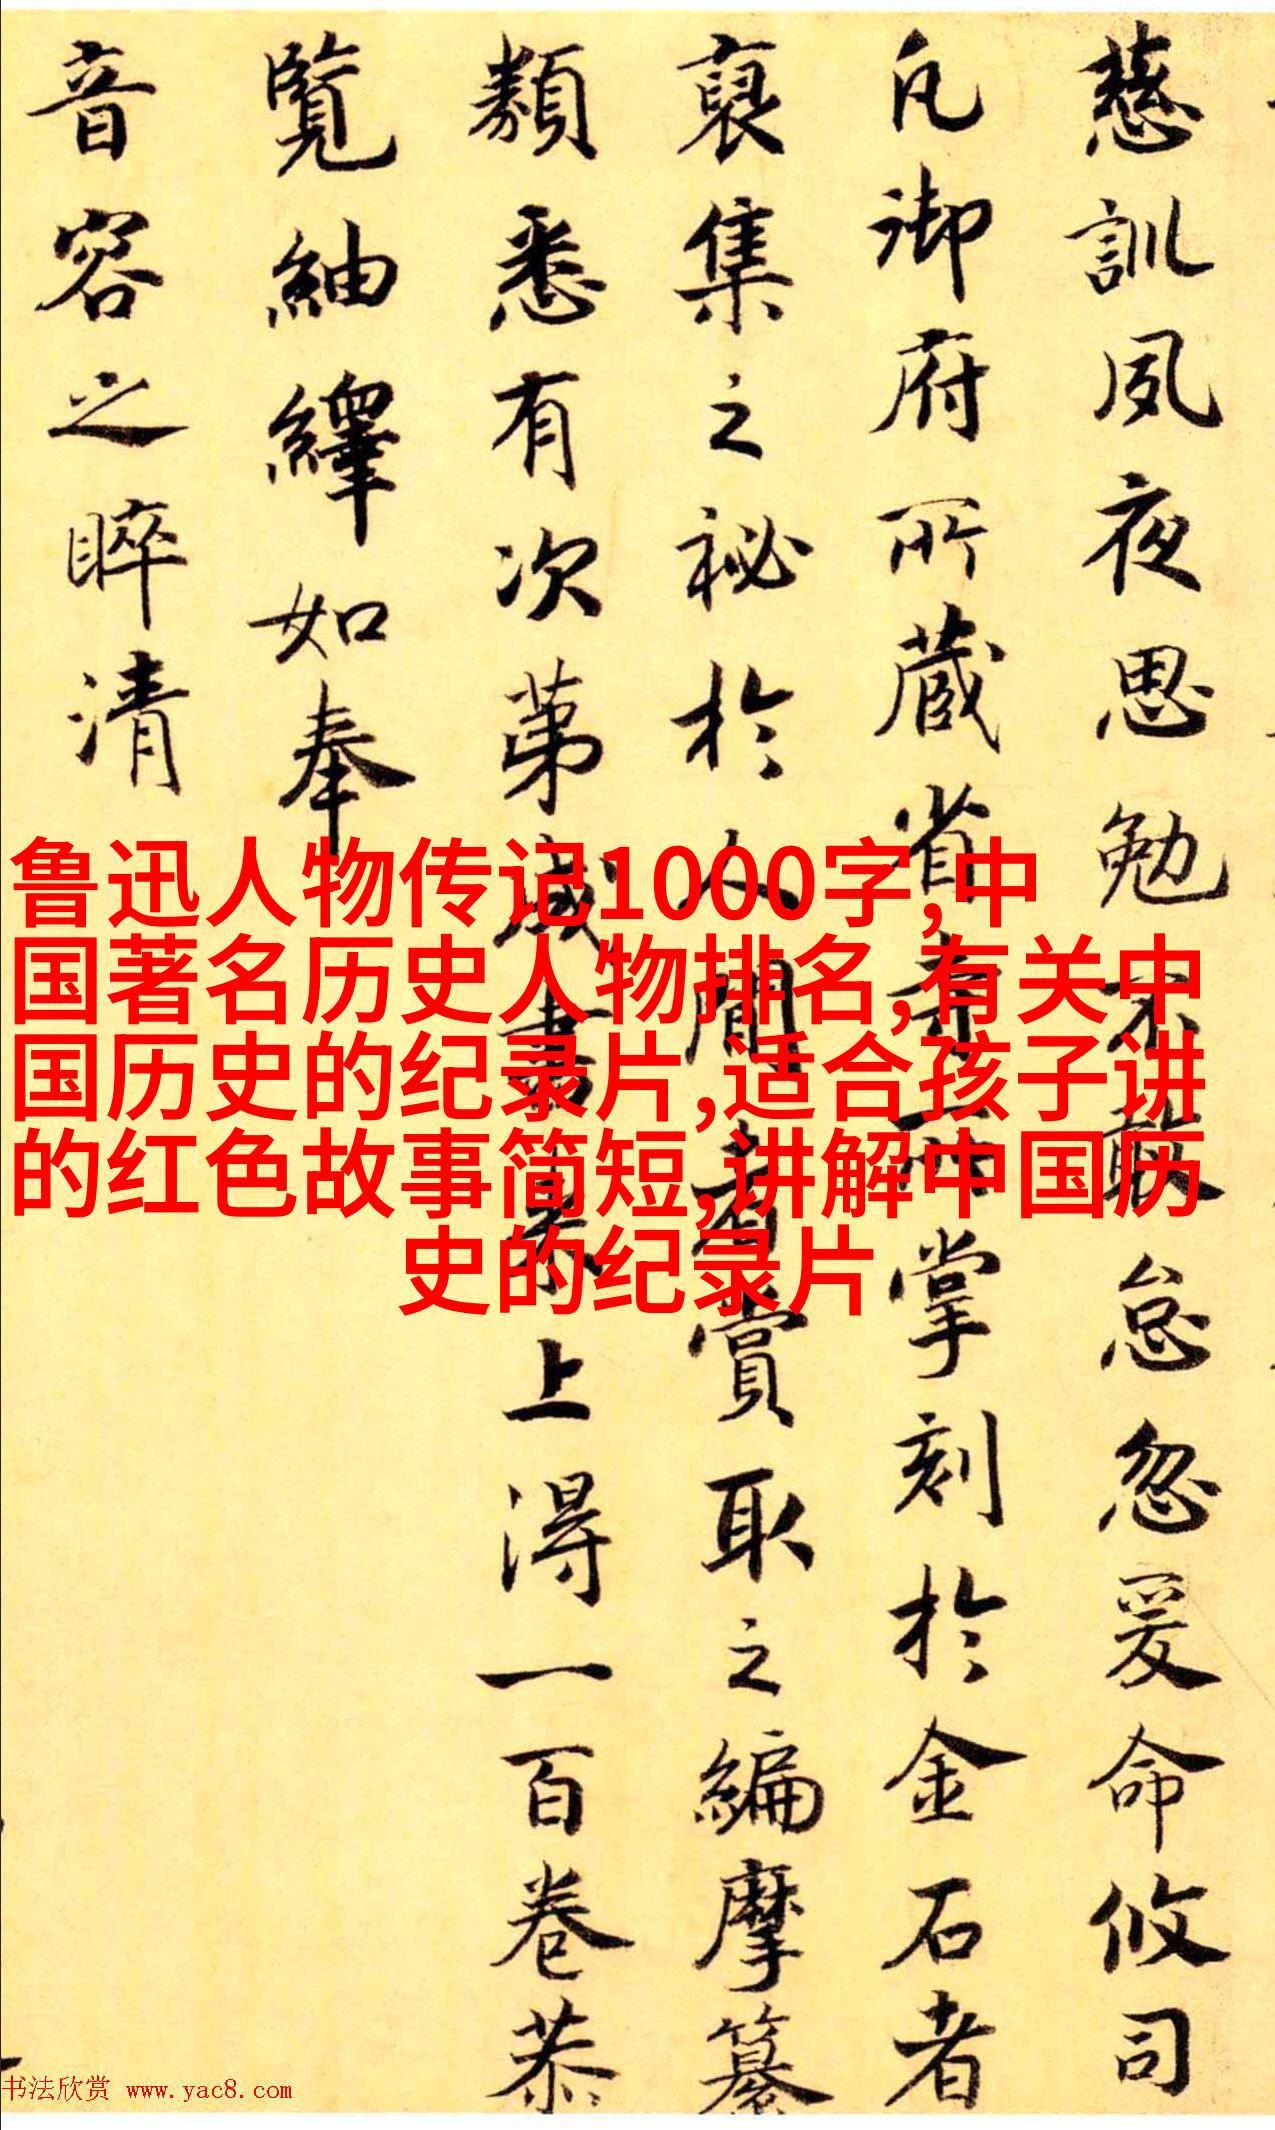 慈訓夙夜思勉不敢怠忽爰命攸司
凡御府所蔵省寺所掌刻於金石者
裒集之秘於人間者賞取之編摩纂
類悉有次第咸書来上淂一百卷恭
覧紬繹如奉
音容之睟清
鲁迅人物传记1000字,中
国著名历史人物排名,有关中
国历史的纪录片,适合孩子讲
的红色故事简短,讲解中国历
史的纪录片
书法欣赏 www.yac8.com